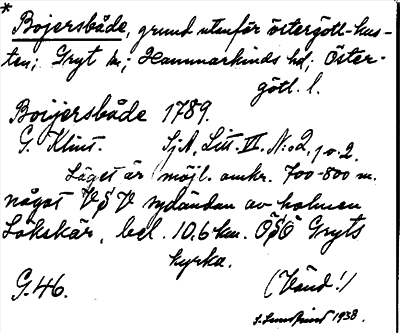 *
Bojersbåde, grund utanför östergötl-kus-
ten; Gryt sn; Hammarkinds hd; Öster-
götl. l.
Boijersbåde 1789.
G. Klint. SjA, Litt. III. N:o 2, 1 o. 2.
Läget är möjl. omkr. 700-800 m.
något V§V sydändan av holmen
Lökskär, bel. 10,6 km. Ö§Ö Gryts
kyrka.
G.46. (Vänd!)
S. 1938.